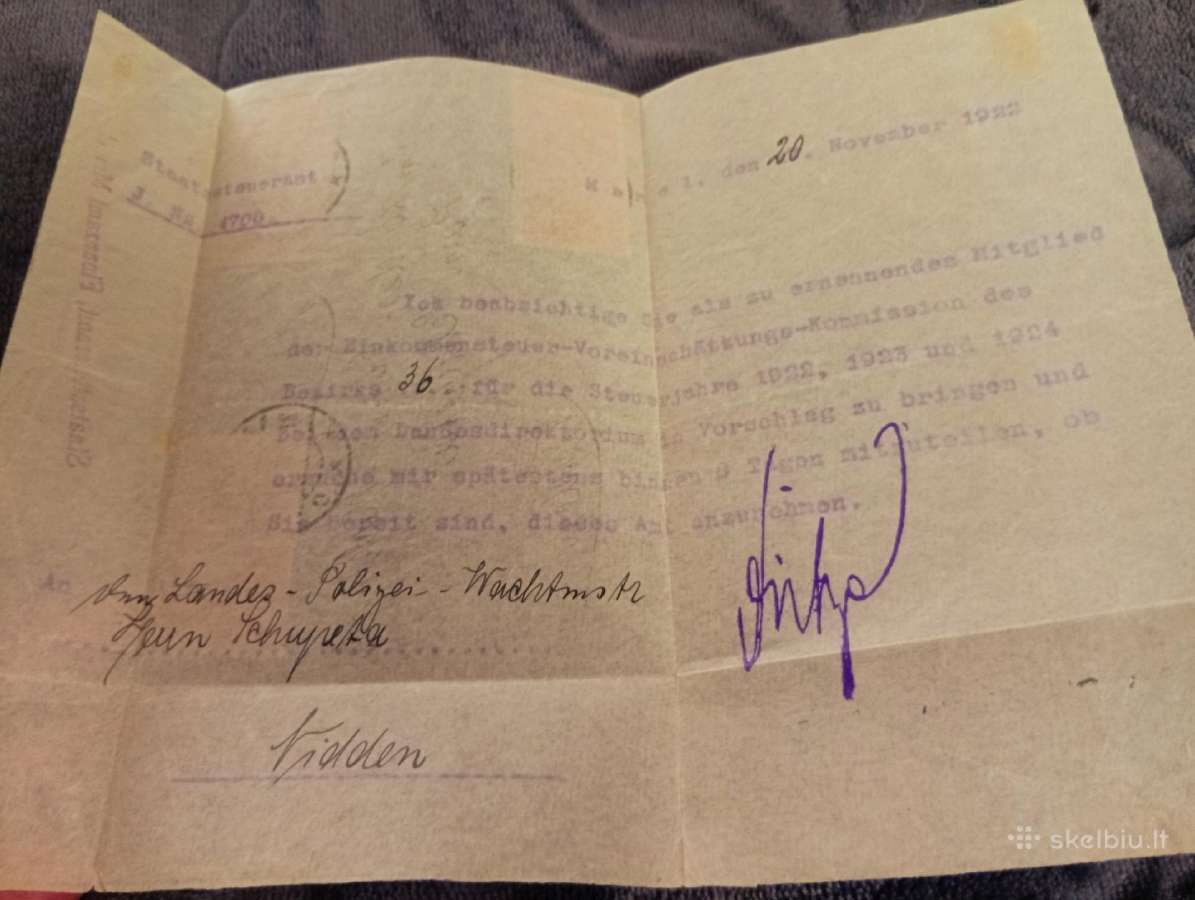 Staatssteueramt
J. Nr. 4700
Memel, den 20. November 1922
Ich beabsichtige Sie als zu ernennendes Mitglied
der Einkommensteuer-Voreinschätzungs-Kommission des
Bezirks 36. für die Steuerjahre 1922, 1923 und 1924
bei dem Landesdirektorium in Vorschlag zu bringen und
ersuche mir spätestens binnen 3 Tagen mitzuteilen, ob
Sie bereit sind, dieses Amt anzunehmen.
An
den Landes-Polizei-Wachtmstr
Herrn Schupeta
Nidden
skelbiu.lt